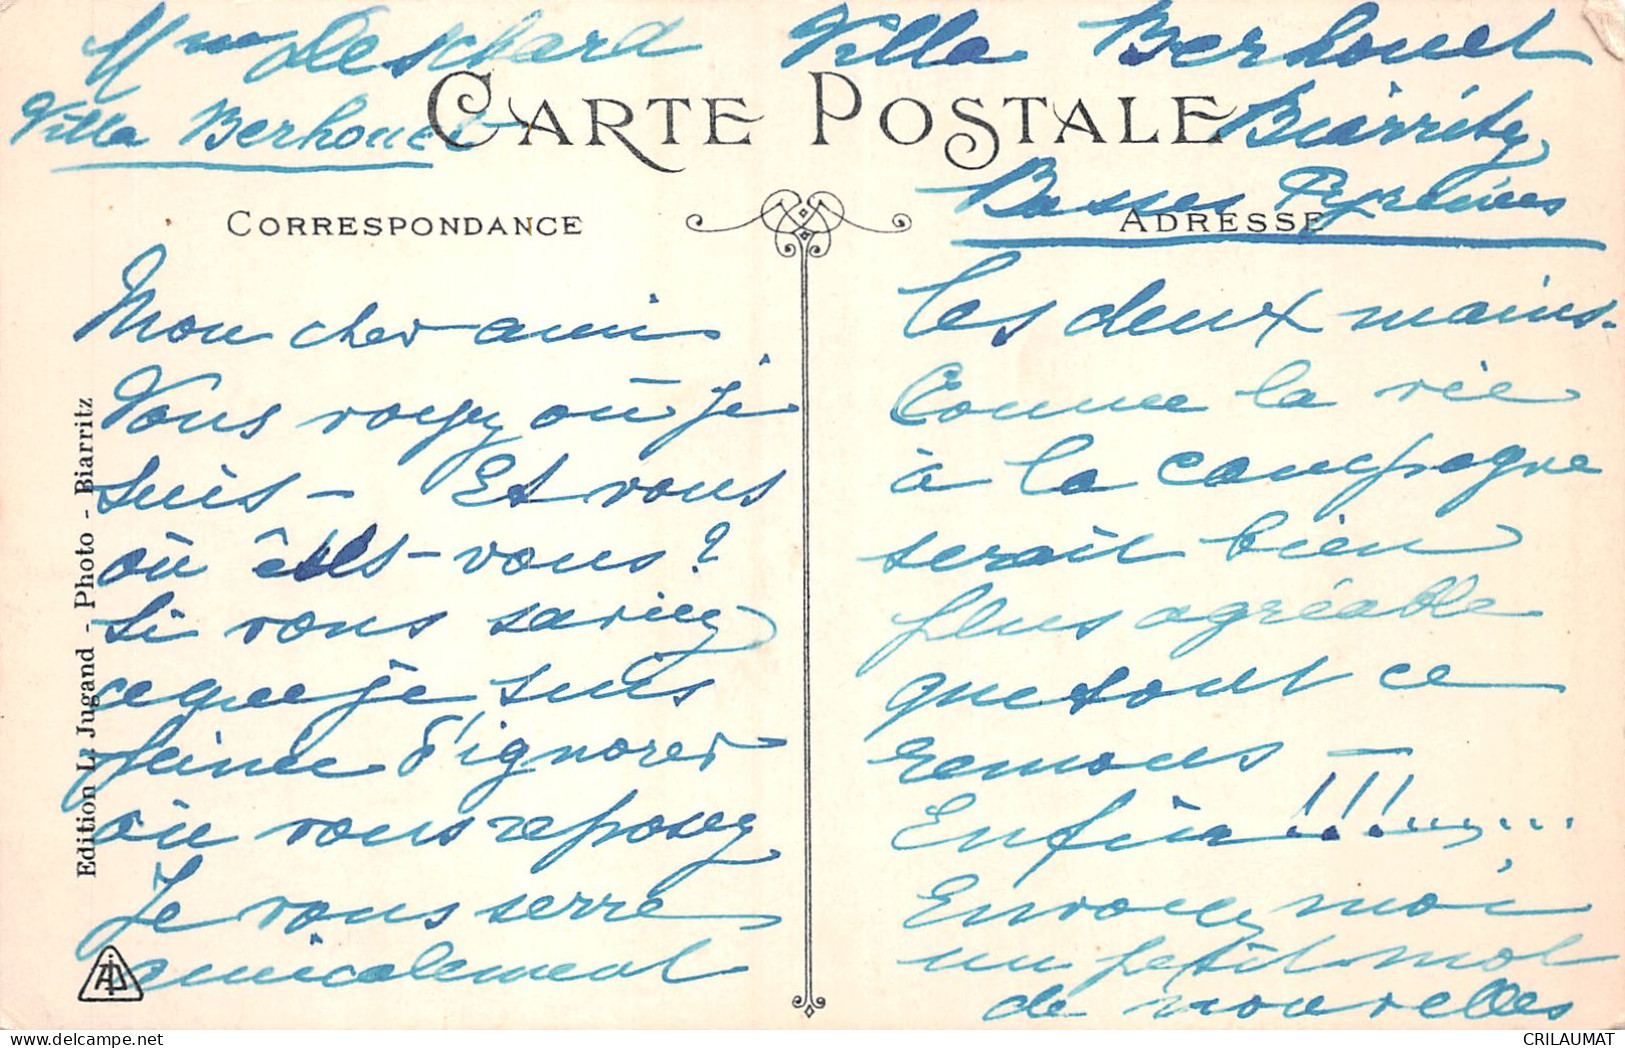 Mme Deschard
Villa Berhouet
Villa Berhouet
Biarritz
Basses Pyrénées
CARTE POSTALE
CORRESPONDANCE
ADRESSE
Mon cher ami
Vous voyez où je
suis - Et vous
où êtes-vous ?
Si vous saviez
ce que je suis
peinée d'ignorer
où vous reposez
Je vous serre
amicalement
les deux mains.
Comme la vie
à la campagne
serait bien
plus agréable
que tout ce
remous -
Enfin !!!......
Envoyez moi
un petit mot
de nouvelles
Edition L. Jugand - Photo - Biarritz
CRILAUMAT